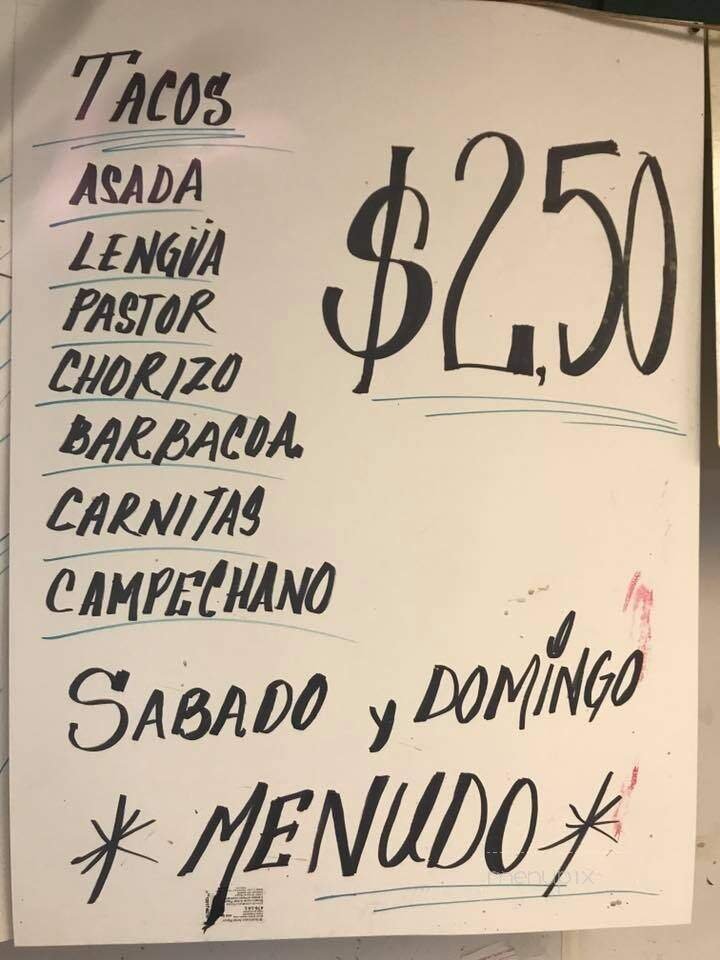 TACOS
$2.50
ASADA
LENGÜA
PASTOR
CHORIZO
BARBACOA
CARNITAS
CAMPECHANO
SABADO y DOMINGO
* MENUDO *
menupix